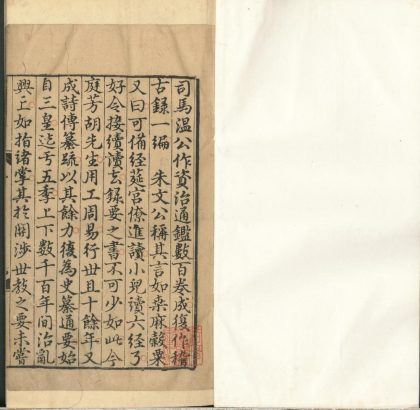 司馬溫公作資治通鑑數百卷成復作稽
古錄一編　朱文公稱其言如桑麻穀粟
又曰可備經筵官僚進讀小兒讀六經了
好令接續讀去錄要之書不可少如此今
庭芳胡先生用工周易行世且十餘年又
成詩傳纂疏以其餘力復為史纂通要始
自三皇迄于五季上下數千百年間治亂
興亡如指諸掌其於關涉世教之要未嘗